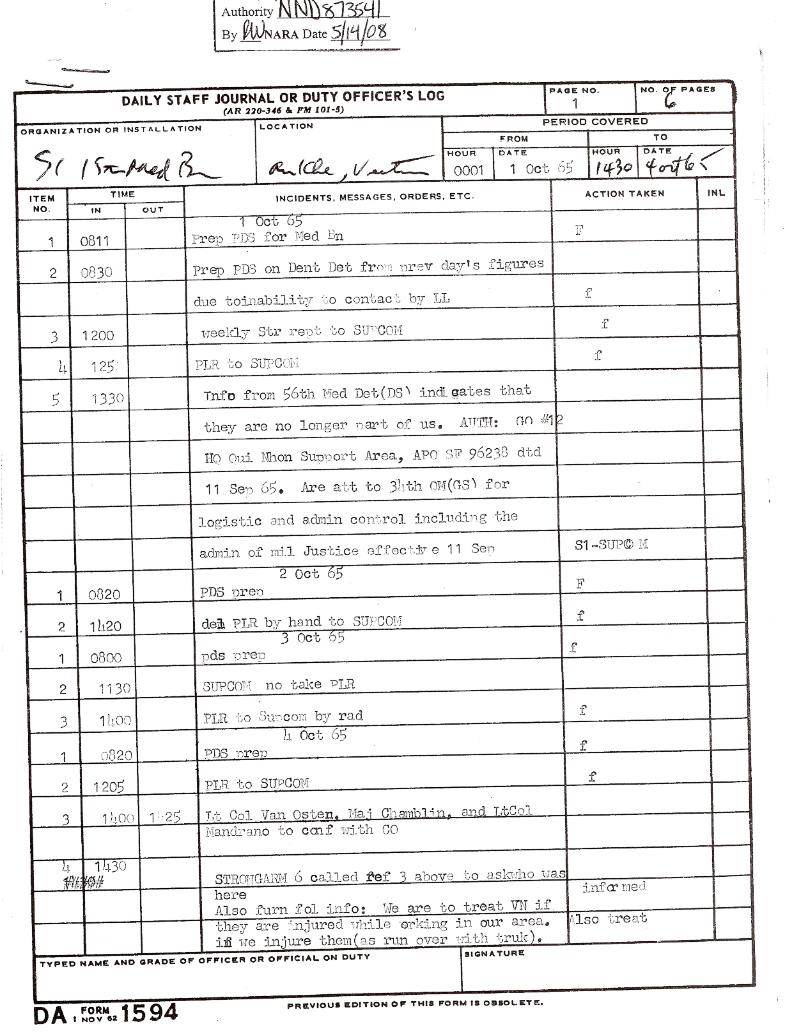 Authority NND873541
By RW NARA Date 5/14/08
DAILY STAFF JOURNAL OR DUTY OFFICER'S LOG
(AR 220-346 & FM 101-5)
PAGE NO.
1
NO. OF PAGES
6
ORGANIZATION OR INSTALLATION
S1 1st Med Bn
LOCATION
PERIOD COVERED
FROM
TO
HOUR
0001
DATE
1 Oct 65
HOUR
1430
DATE
4 Oct 65
ITEM NO.
TIME
IN
OUT
INCIDENTS, MESSAGES, ORDERS, ETC.
ACTION TAKEN
INL
1 Oct 65
1 0811 Prep PDS for Med Bn F
2 0830 Prep PDS on Dent Det from prev day's figures
due toinability to contact by LL f
3 1200 weekly Str rept to SUPCOM f
4 125 PLR to SUPCOM f
5 1330 Info from 56th Med Det(DS) indigates that
they are no longer part of us. AUTH: GO #12
HO Qui Nhon Support Area, APO SF 96238 dtd
11 Sep 65. Are att to 34th QM(GS) for
logistic and admin control including the
admin of mil Justice effective 11 Sep S1-SUPCOM
2 Oct 65
1 0820 PDS prep F
2 1420 del PLR by hand to SUPCOM f
3 Oct 65
1 0800 pds prep f
2 1130 SUPCOM no take PLR
3 1400 PLR to Supcom by rad f
4 Oct 65
1 0820 PDS prep f
2 1205 PLR to SUPCOM f
3 1400 1425 Lt Col Van Osten, Maj Chamblin, and LtCol
Mandrano to conf with CO
4 1430
STRONGARM 6 called ref 3 above to askwho was
here informed
Also furn fol info: We are to treat VN if
they are injured while orking in our area. Also treat
if we injure them(as run over with truk).
TYPED NAME AND GRADE OF OFFICER OR OFFICIAL ON DUTY
SIGNATURE
DA FORM 1 NOV 62 1594
PREVIOUS EDITION OF THIS FORM IS OBSOLETE.